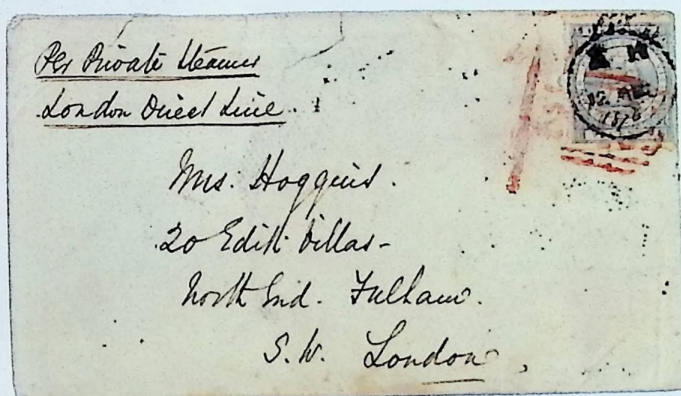 Per Private Steamer
London Direct Line
Mrs. Hoggins.
20 Edith Villas-
North End. Fulham.
S.W. London
1878